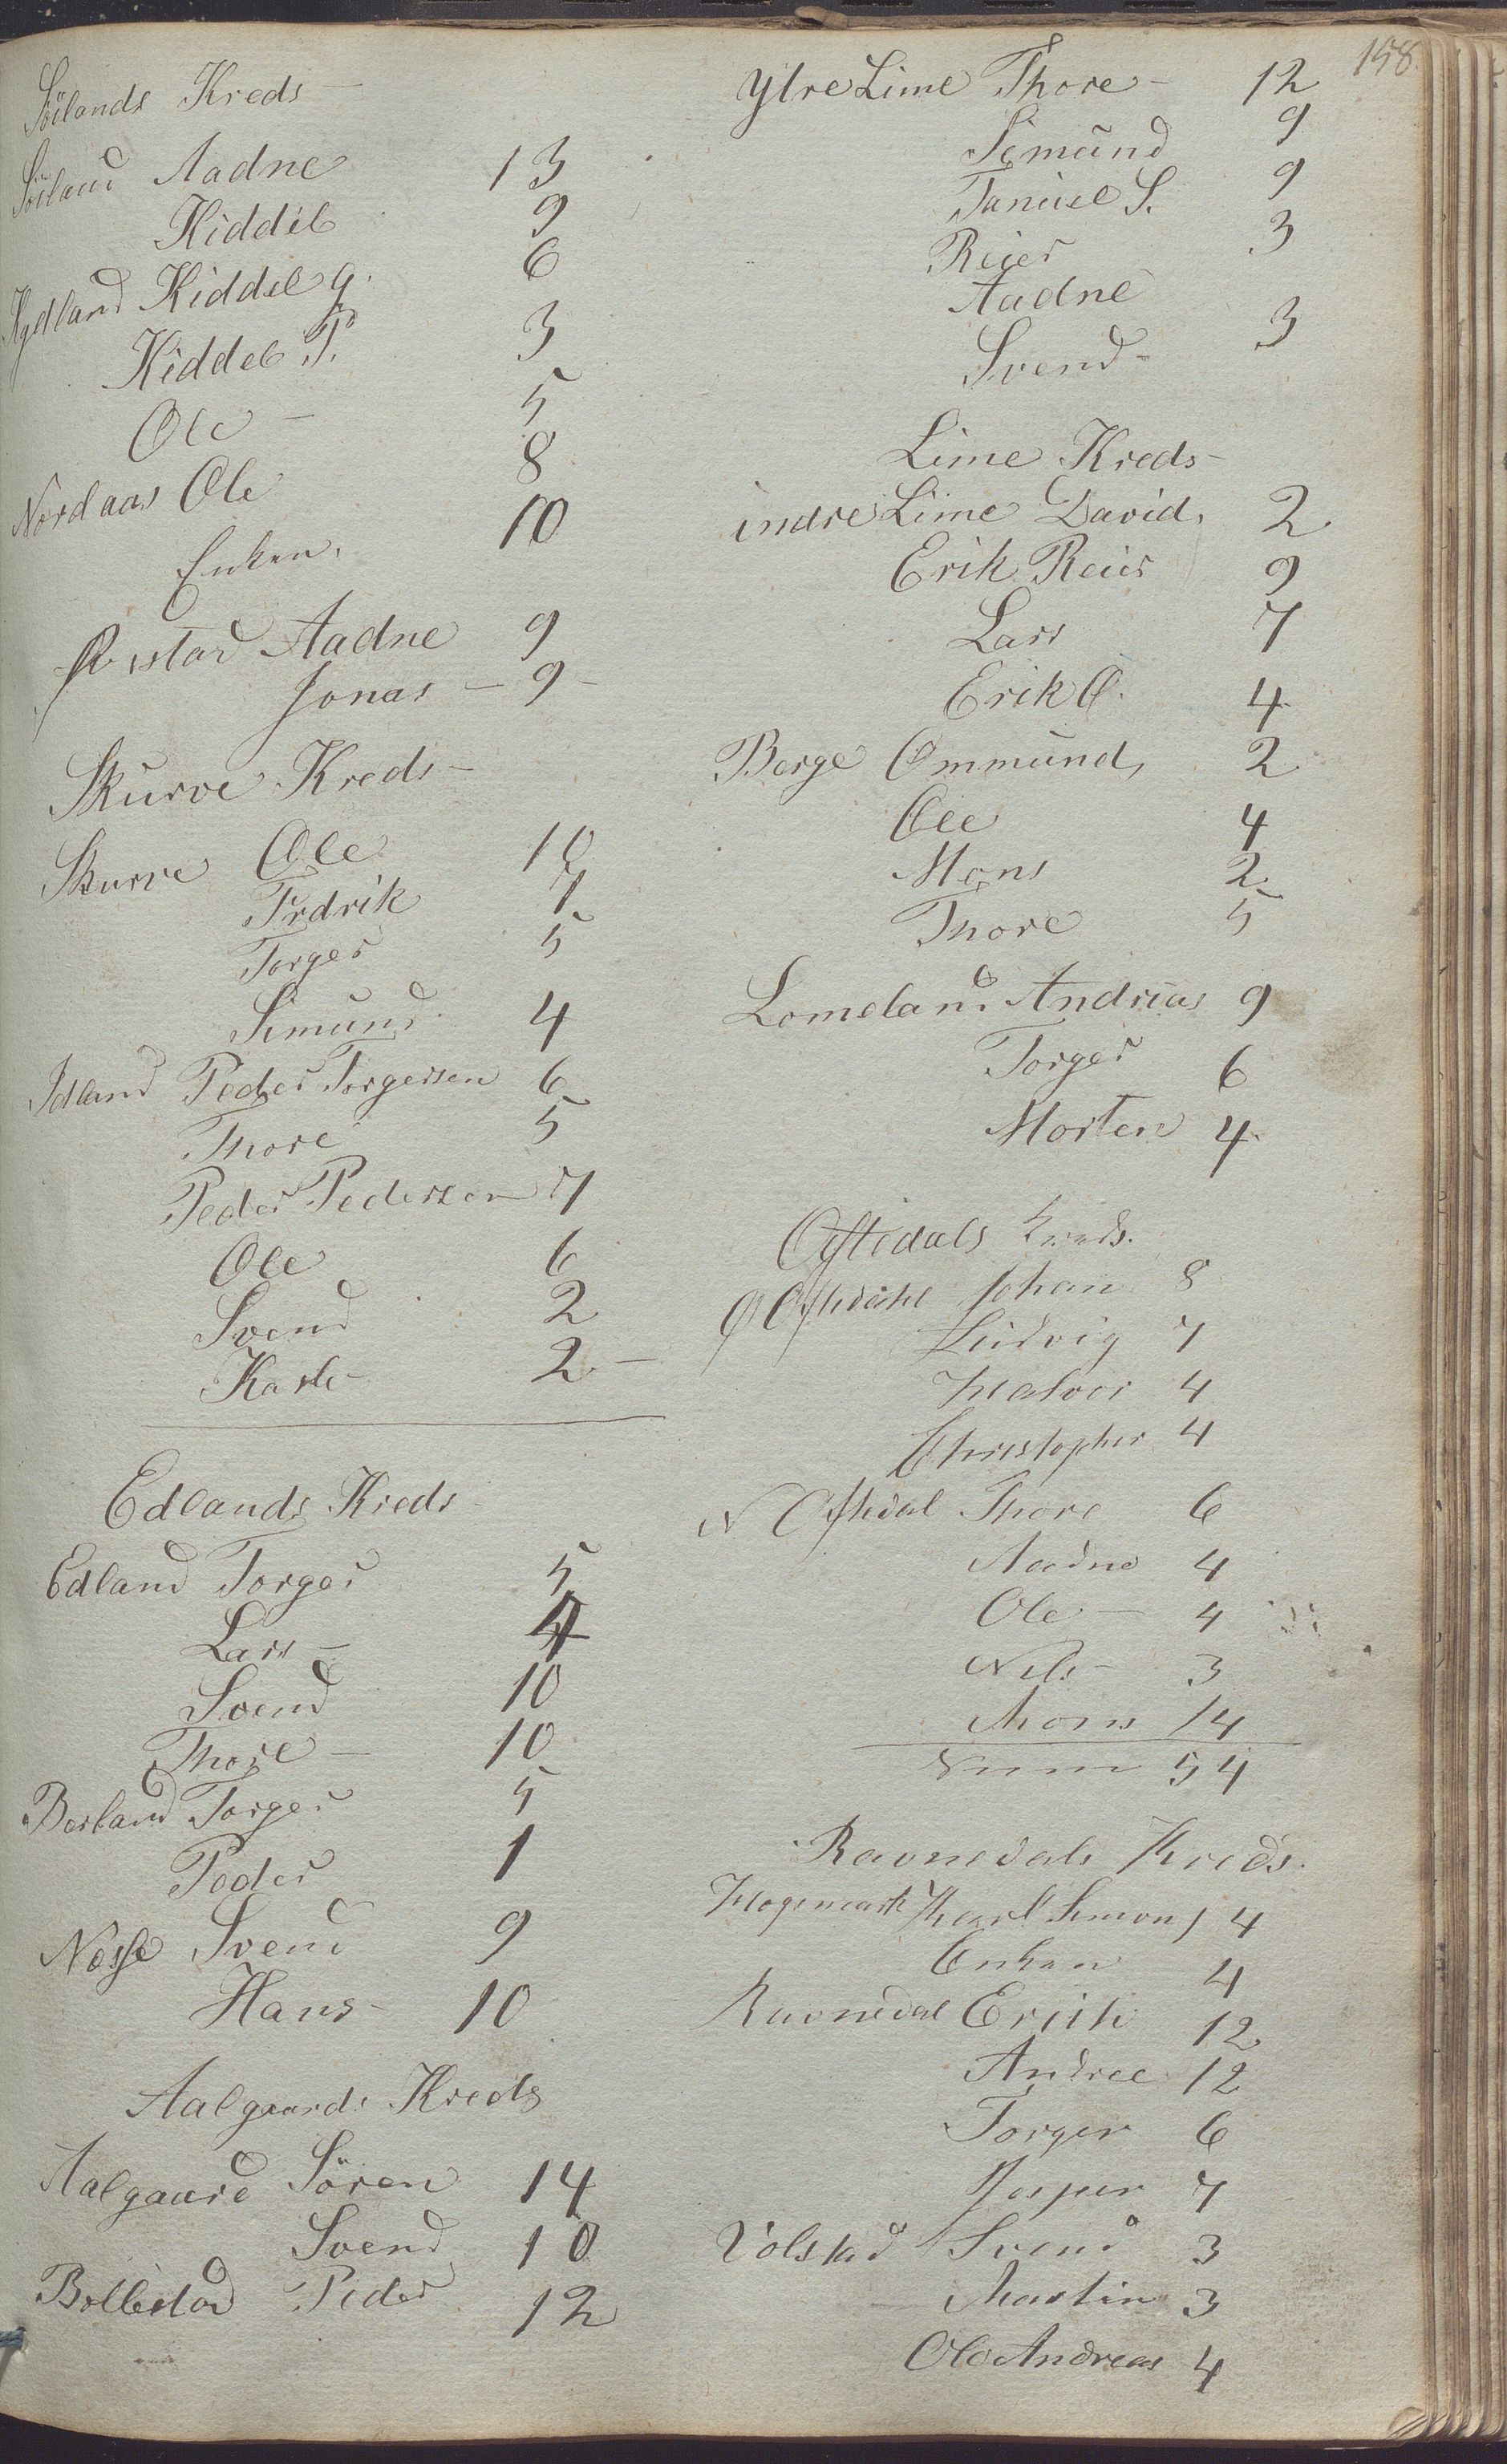 158.
Söilands Kreds –
Söiland Aadne 13
Kiddel 9
Kydland Kiddel G. 6
Kiddel T. 3
Ole – 5
Nordaas Ole 8
Enken. 10
Østad Aadne 9
Jonas – 9 –
Skurve Kreds –
Skurve Ole 10
Frdrik 7
Torger 5
Simund 4
Idland Peder Torgersen 6
Thore 5
Peder Pedersen 7
Ole 6
Svend 2
Karle – 2 –
Edlands Kreds
Edland Torger 5
Lars – 4
Svend 10
Thore – 10
Berland Torger 5
Peder 1
Nesse Svend 9
Hans – 10
Aalgaards Kreds
Aalgaard Sören 14
Svend 10
Bollestad Peder 12
Ytre Lime Thore – 12
Simund 9
Tanius S. 9
Reier 3
Aadne
Svend – 3
Lime Kreds –
indre Lime David, 2
Erik Reier 9
Lars 7
Erik O. 4
Berge Ommund, 2
Ole 4
Mons 2
Thore 5
Lomeland Andreas 9
Torger 6
Morten 4
Oftedals Kreds.
Ø Oftedahl Johan 8
Ludvig 7
Halvor 4
Christopher 4
N Oftedal Thore 6
Aadne 4
Ole – 4
Nils – 3
Mons 14
54
Ravnedals Kreds.
Karl Simons 4
Enken 4
Ravnedal Erich 12
Andree 12
Torger 6
Jesper 7
Volstad Svend 3
Martin 3
Ole Andreas 4